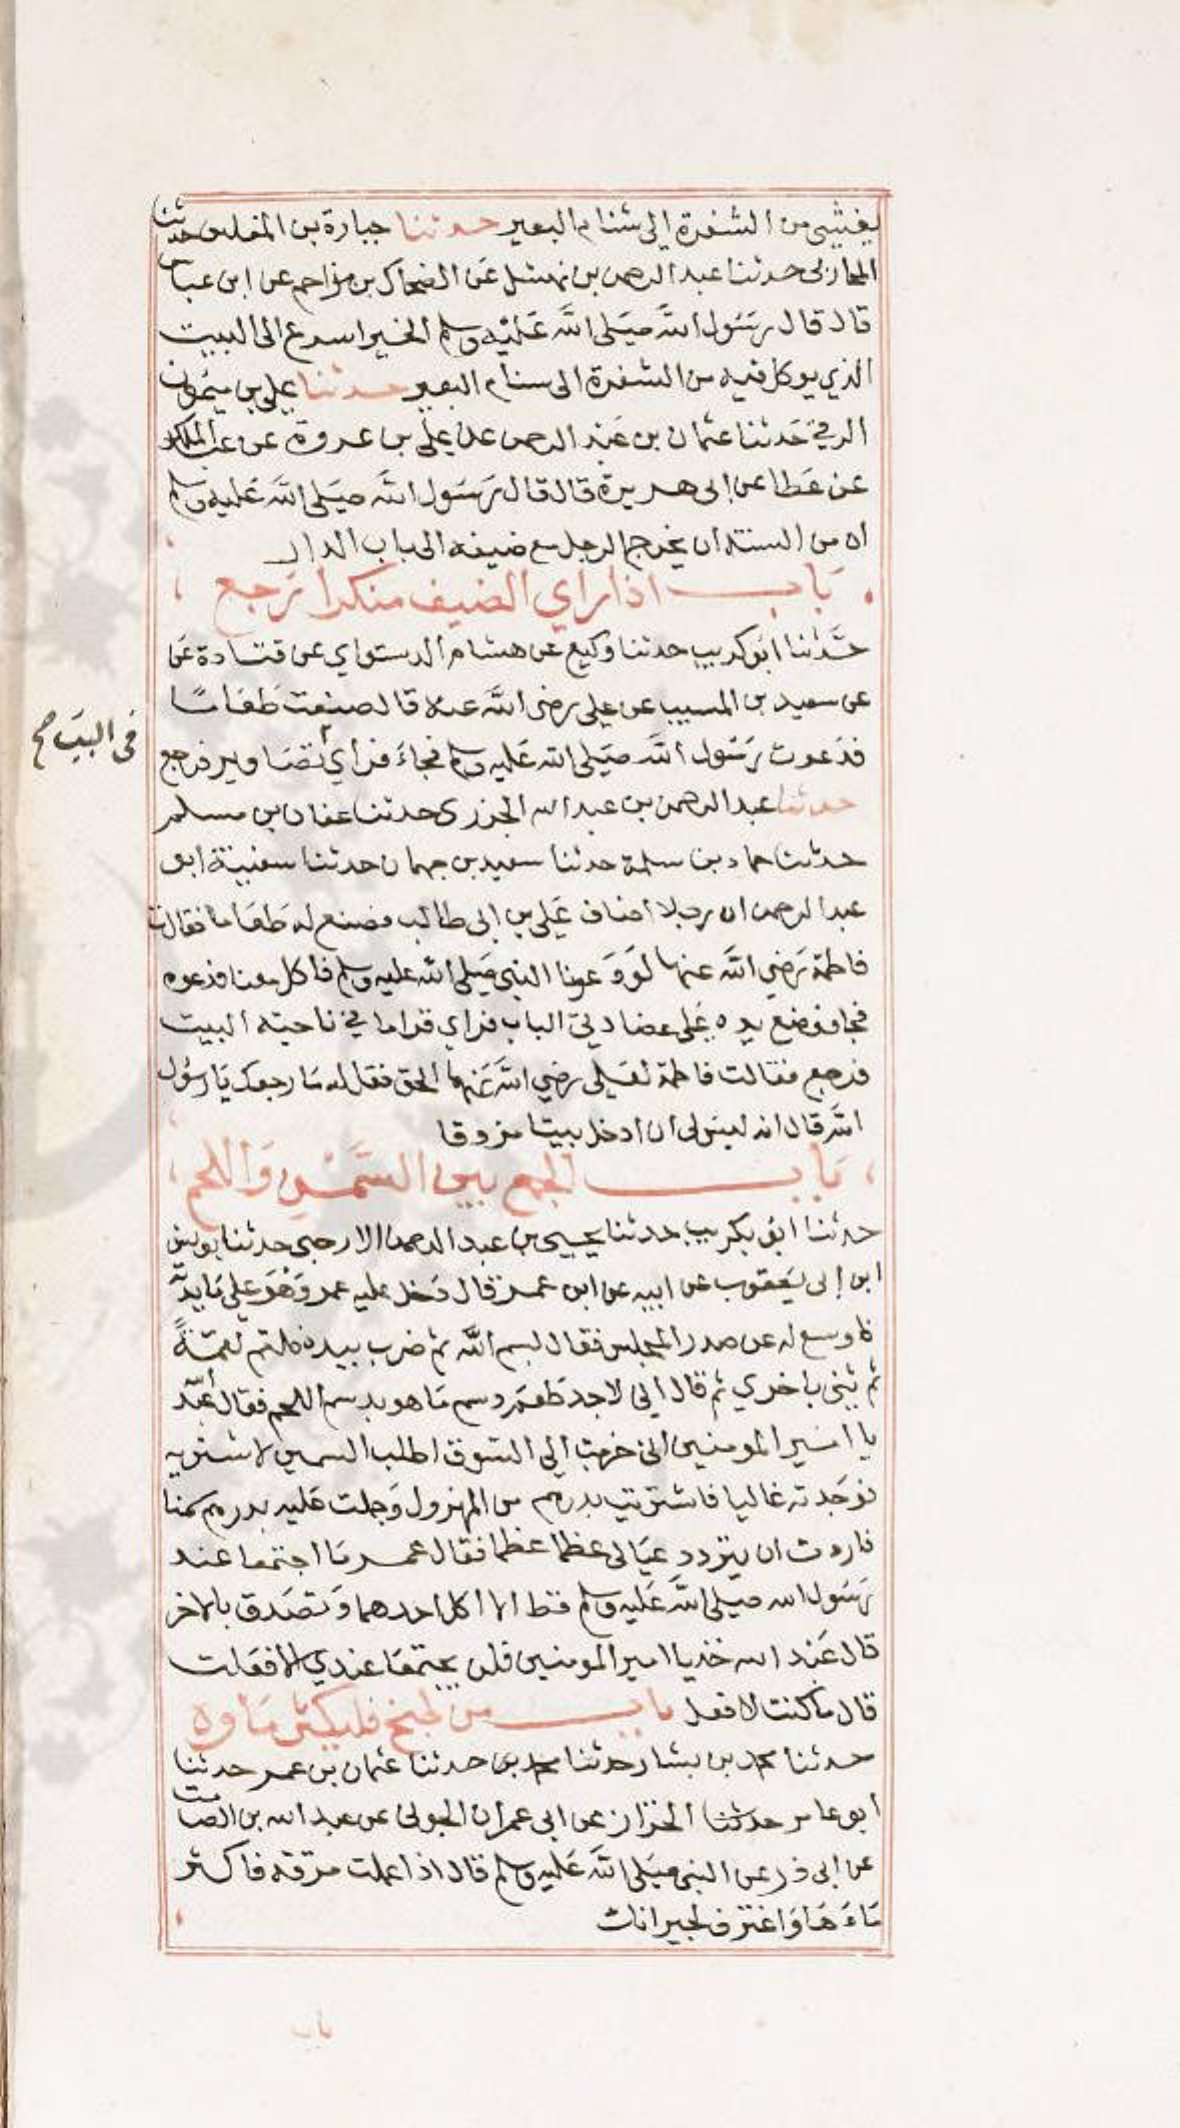 يغشى من الشفرة الى سنام البعير حدثنا جبارة بن المغلس حدثنا
المحاربى حدثنا عبد الرحمن بن نهشل عن الضحاك بن مزاحم عن ابن عباس
قال قال رسول الله صَلى الله عَليْه وسلم الخير اسرع الى البيت
الذي يوكل فيه من الشفرة الى سنام البعير حدثنا علي بن ميمون
الرقي حَدثنا عثمان بن عَبد الرحمن عن علي بن عروة عن عبد الملك
عن عَطا عن ابى هريرة قال قال رَسَول الله صَلى الله عَليه وسلم
ان من السنة ان يخرج الرجل مع ضيفه الى باب الدار
بَاب اذا راي الضيف منكرا رَجع
حَدَّثنا ابَو كريب حدثنا وكيع عن هشام الدستواي عن قتادة عَن
عن سعيد بن المسيب عن علي رضى الله عنه قال صنعت طَعَامًا
فدَعوت رَسَول الله صَلى الله عَليه وسلم فجاءَ فراي تصَاوير فرجع
فى البيَت صح
حدثنا عبد الرحمن بن عبد الله الجزرى حدثنا عفان بن مسلم
حدثنا حماد بن سلمة حدثنا سعيد بن جهمان حدثنا سفينة ابو
عبد الرحمن ان رجلا اضاف عَلي بن ابى طالب فصنع له طَعَاما فقالت
فاطمة رَضي الله عنها لَو دَعونا النبى صَلى الله عليه وسلم فاكل معنا فدعوه
فجا فوضع يده عَلى عضادتي الباب فراي قراما في ناحية البيت
فرجع فقالت فاطمة لعَلي رضي الله عَنهما الحق فقل له مَا رجعك يَا رسَول
الله قال انه ليس لى ان ادخل بيتا مزوقا
بَاب الجمع بين السَّمْن وَاللحم
حدثنا ابو كريب حدثنا يحيى بن عبد الرحمن الارحبى حدثنا يونس
ابن ابى يَعقوب عن ابيه عن ابن عمر قال دَخل عليه عمر وَهْوَ علي مَايدَة
فاوسع له عن صدر المجلس فقال بسم الله ثم ضرب بيده فلقم لقمَةً
ثم ثنى باخري ثم قال اني لاجد طَعَم دسم مَا هو بدسم اللحم فقال عَبْد
يا امير المومنين انى خرجت الي السَوق اطلب السمين لاشتريه
فوجَدته غاليا فاشتريت بدرهم من المهزول وَحملت عَليه بدرهم سمنا
فاردت ان يتردد عيَالى عظما عظما فقال عمر مَا اجتمعا عند
رَسَول الله صَلي الله عَليه وسلم قط الا اكل احدهما وَتصَدق بالاخر
قال عَبد الله خذ يا امير المومنين فلن يجتمعَا عندي الا فعَلت
قال مَا كنت لافعل باب من طبخ فليكثر مَاوه
حدثنا محمد بن بشار حدثنا محمد بن حدثنا عثمان بن عمر حدثنا
ابو عامر حدثنا الخزاز عن ابى عمران الجونى عن عبد الله بن الصامت
عن ابى ذر عن النبى صَلى الله عَليه وسلم قال اذا عملت مرقة فاكثر
مَاءَهَا وَاغترف لجيرانك
باب